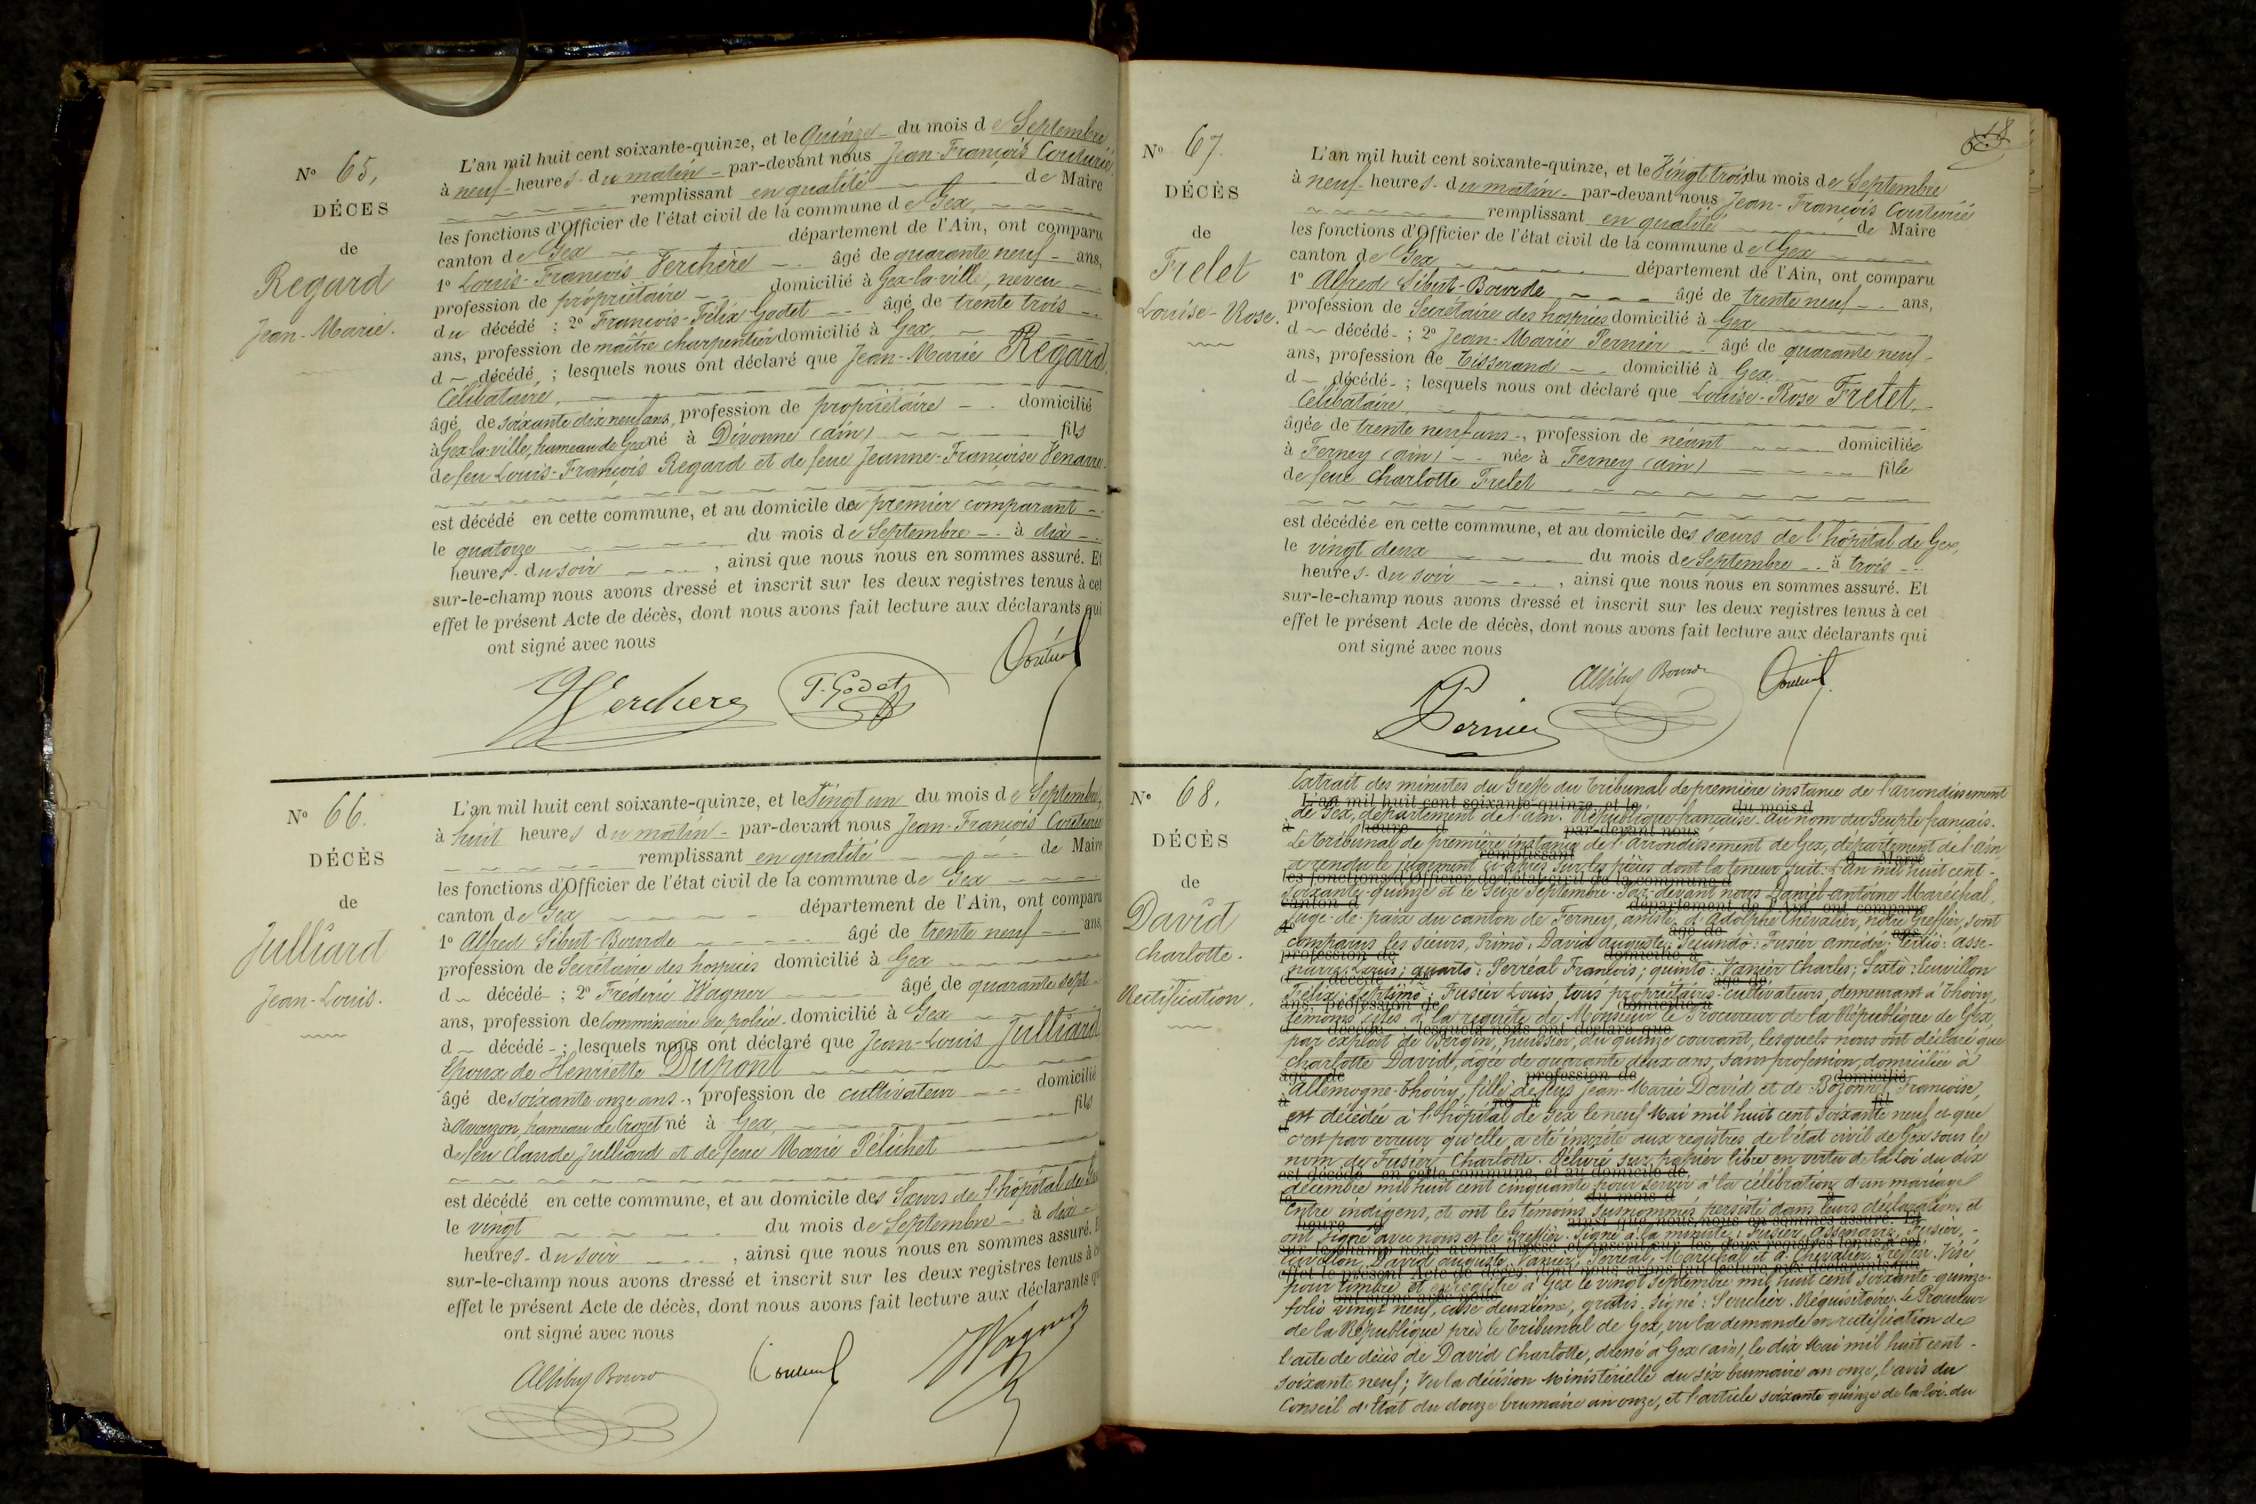 N° 65,
DÉCÈS
de
Regard
Jean-Marie.
L'an mil huit cent soixante-quinze, et le Quinze du mois de Septembre
à neuf heures du matin par-devant nous Jean-François Couturié
remplissant en qualité de Maire
les fonctions d'Officier de l'état civil de la commune de Gex,
canton de Gex département de l'Ain, ont comparu
1° Louis-François Verchère âgé de quarante neuf ans,
profession de propriétaire domicilié à Gex-la-ville, neveu
du décédé ; 2° François-Félix Godet âgé de trente trois
ans, profession de maître charpentier domicilié à Gex
d décédé ; lesquels nous ont déclaré que Jean-Marie Regard,
Célibataire,
âgé de soixante dix neuf ans, profession de propriétaire domicilié
à Gex-la-ville, hameau de Gex né à Divonne (ain) fils
de feu Louis-François Regard et de feue Jeanne-Françoise
est décédé en cette commune, et au domicile du premier comparant
le quatorze du mois de Septembre à dix
heures du soir , ainsi que nous nous en sommes assuré. Et
sur-le-champ nous avons dressé et inscrit sur les deux registres tenus à cet
effet le présent Acte de décès, dont nous avons fait lecture aux déclarants qui
ont signé avec nous
Verchere F. Godet
N° 66.
DÉCÈS
de
Julliard
Jean-Louis.
L'an mil huit cent soixante-quinze, et le Vingt un du mois de Septembre,
à huit heures du matin par-devant nous Jean-François Couturié
remplissant en qualité de Maire
les fonctions d'Officier de l'état civil de la commune de Gex
canton de Gex département de l'Ain, ont comparu
1° Alfred Sibut-Bourde âgé de trente neuf ans,
profession de Secrétaire des hospices domicilié à Gex
d décédé ; 2° Frédéric Wagner âgé de quarante sept
ans, profession de Commissaire de police domicilié à Gex
d décédé ; lesquels nous ont déclaré que Jean-Louis Julliard
Epoux de Henriette Dupont
âgé de soixante onze ans, profession de cultivateur domicilié
à Avouzon, hameau de Crozet né à Gex, fils
de feu Claude Julliard et de feue Marie Pélichet
est décédé en cette commune, et au domicile des Sœurs de l'hôpital de Gex
le vingt du mois de Septembre à dix
heures du soir , ainsi que nous nous en sommes assuré. Et
sur-le-champ nous avons dressé et inscrit sur les deux registres tenus à cet
effet le présent Acte de décès, dont nous avons fait lecture aux déclarants qui
ont signé avec nous
Wagner
N° 67.
DÉCÈS
de
Frelet
Louise-Rose.
L'an mil huit cent soixante-quinze, et le Vingt trois du mois de Septembre
à neuf heures du matin par-devant nous Jean-François Couturié
remplissant en qualité de Maire
les fonctions d'Officier de l'état civil de la commune de Gex
canton de Gex département de l'Ain, ont comparu
1° Alfred Sibut-Bourde âgé de trente neuf ans,
profession de Secrétaire des hospices domicilié à Gex
d décédé ; 2° Jean-Marie Pernier âgé de quarante neuf
ans, profession de Tisserand domicilié à Gex,
d décédé ; lesquels nous ont déclaré que Louise-Rose Frelet,
Célibataire,
âgée de trente neuf ans, profession de néant domiciliée
à Ferney (ain) née à Ferney (ain) fille
de feue Charlotte Frelet
est décédée en cette commune, et au domicile des sœurs de l'hôpital de Gex,
le vingt deux du mois de Septembre à trois
heures du soir , ainsi que nous nous en sommes assuré. Et
sur-le-champ nous avons dressé et inscrit sur les deux registres tenus à cet
effet le présent Acte de décès, dont nous avons fait lecture aux déclarants qui
ont signé avec nous
Pernier
N° 68,
DÉCÈS
de
David
Charlotte.
Rectification.
Extrait des minutes du Greffe du Tribunal de première instance de l'arrondissement
de Gex, département de l'ain. République française. Au nom du Peuple français.
Le tribunal de première instance de l'arrondissement de Gex, département de l'ain,
a rendu le jugement ci-après sur les pièces dont la teneur suit: L'an mil huit cent
soixante-quinze et le Seize Septembre. Par-devant nous Daniel-Antoine Maréchal,
Juge-de-paix du canton de Ferney, assisté d'Adolphe Chevalier, notre Greffier, sont
comparus les sieurs, Primò: David auguste; Secundò: Fusier amédée; tertiò: asse-
narre Louis; quartò: Perréal François; quintò: Vanier Charles; Sextò: Cuvillon
Félix; septimò: Fusier Louis, tous propriétaires-cultivateurs, demeurant à Thoiry,
témoins cités à la requête de Monsieur le Procureur de la République de Gex,
par exploit de Bergin, huissier, du quinze courant, lesquels nous ont déclaré que
Charlotte David, âgée de quarante deux ans, sans profession, domiciliée à
Allemogne-Thoiry, fille de feus Jean-Marie David et de Bozonnet Françoise,
est décédée à l'hôpital de Gex le neuf Mai mil huit cent soixante neuf et que
c'est par erreur qu'elle a été inscrite aux registres de l'état civil de Gex sous le
nom de Fusier Charlotte. Délivré sur papier libre en vertu de la loi du dix
décembre mil huit cent cinquante pour servir à la célébration d'un mariage
entre indigens, et ont les témoins susnommés persisté dans leurs déclarations et
ont signé avec nous et le Greffier. Signé à la minute: Fusier, assenarre, Fusier,
Cuvillon, David auguste, Vanier, Perréal, Maréchal et A. Chevalier Greffier. Visé
pour timbre et enregistré à Gex le vingt Septembre mil huit cent soixante-quinze
folio vingt neuf, case deuxième, gratis. Signé: Souchier. Réquisitoire. Le Procureur
de la République près le tribunal de Gex, vu la demande en rectification de
l'acte de décès de David Charlotte, dressé à Gex (ain), le dix Mai mil huit cent
soixante neuf; Vu la décision Ministérielle du six brumaire an onze, l'avis du
Conseil d'Etat du douze brumaire an onze, et l'article soixante quinze de la loi du